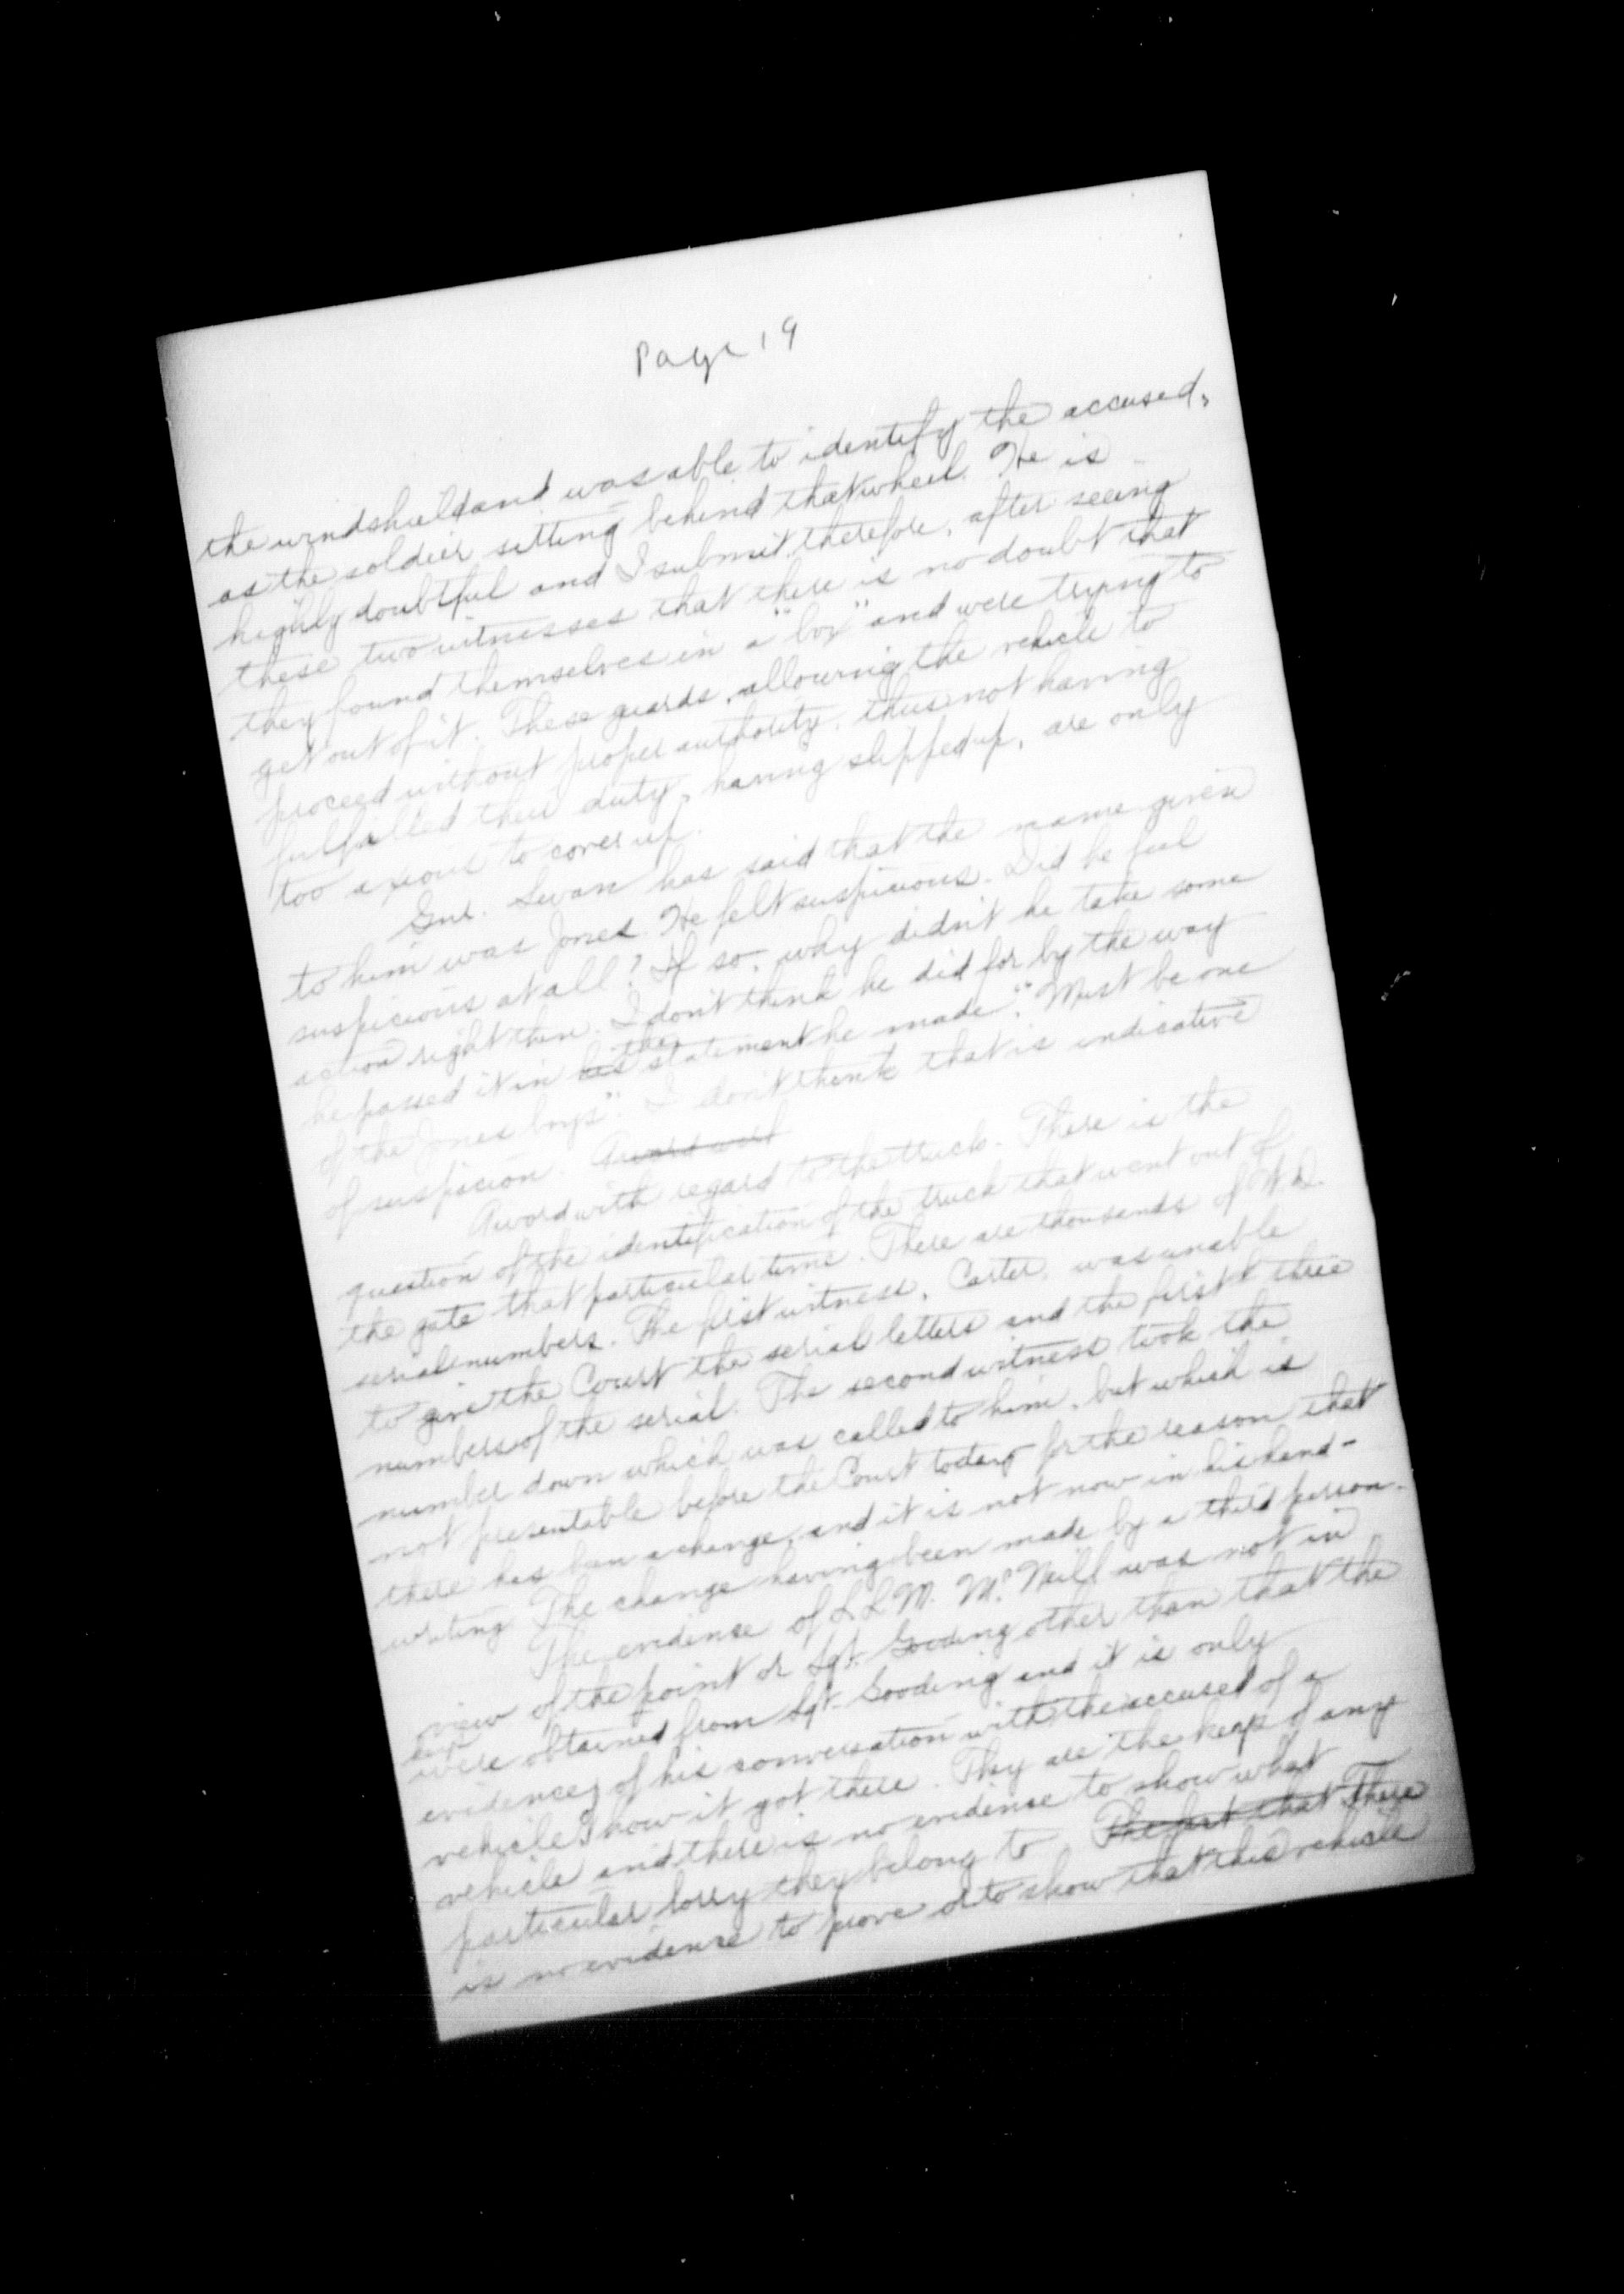 Page 19
the windshield and was able to identify the accused,
as the soldier sitting behind that wheel. He is
highly doubtful and I submit therefore, after seeing
these two witnesses that there is no doubt that
they found themselves in a "box" and were trying to
get out of it. These guards, allowing the vehicle to
proceed without proper authority, thus not having
fulfilled their duty, having slipped up, are only
too axious to cover up.
Gnr. Swan has said that the name given
to him was Jones. He felt suspicious. Did he feel
suspicious at all? If so, why didn't he take some
action right then. I don't think he did for by the way
he passed it in his the statement he made, "Must be one
of the Jones boys". I don't think that is indicative
of suspicion. A word with
A word with regard to the truck. There is the
question of the identification of the truck that went out of
the gate that particular time. There are thousands of W.D.
serial numbers. The first witness, Carter, was unable
to give the Court the serial letters and the first three
numbers of the serial. The second witness took the
number down which was called to him, but which is
not presentable before the Court today for the reason that
there has been a change, and it is not now in his hand-
writing. The change having been made by a third person.
The evidence of L.L.M. McNeill was not in
view of the point or Sgt. Gooding other than that the
keys were obtained from Sgt. Gooding and it is only
evidence of his conversation with the accused of a
vehicle & how it got there. They are the keys of any
vehicle and there is no evidence to show what
particular lorry they belong to. The fact that There
is no evidence to prove or to show that this vehicle